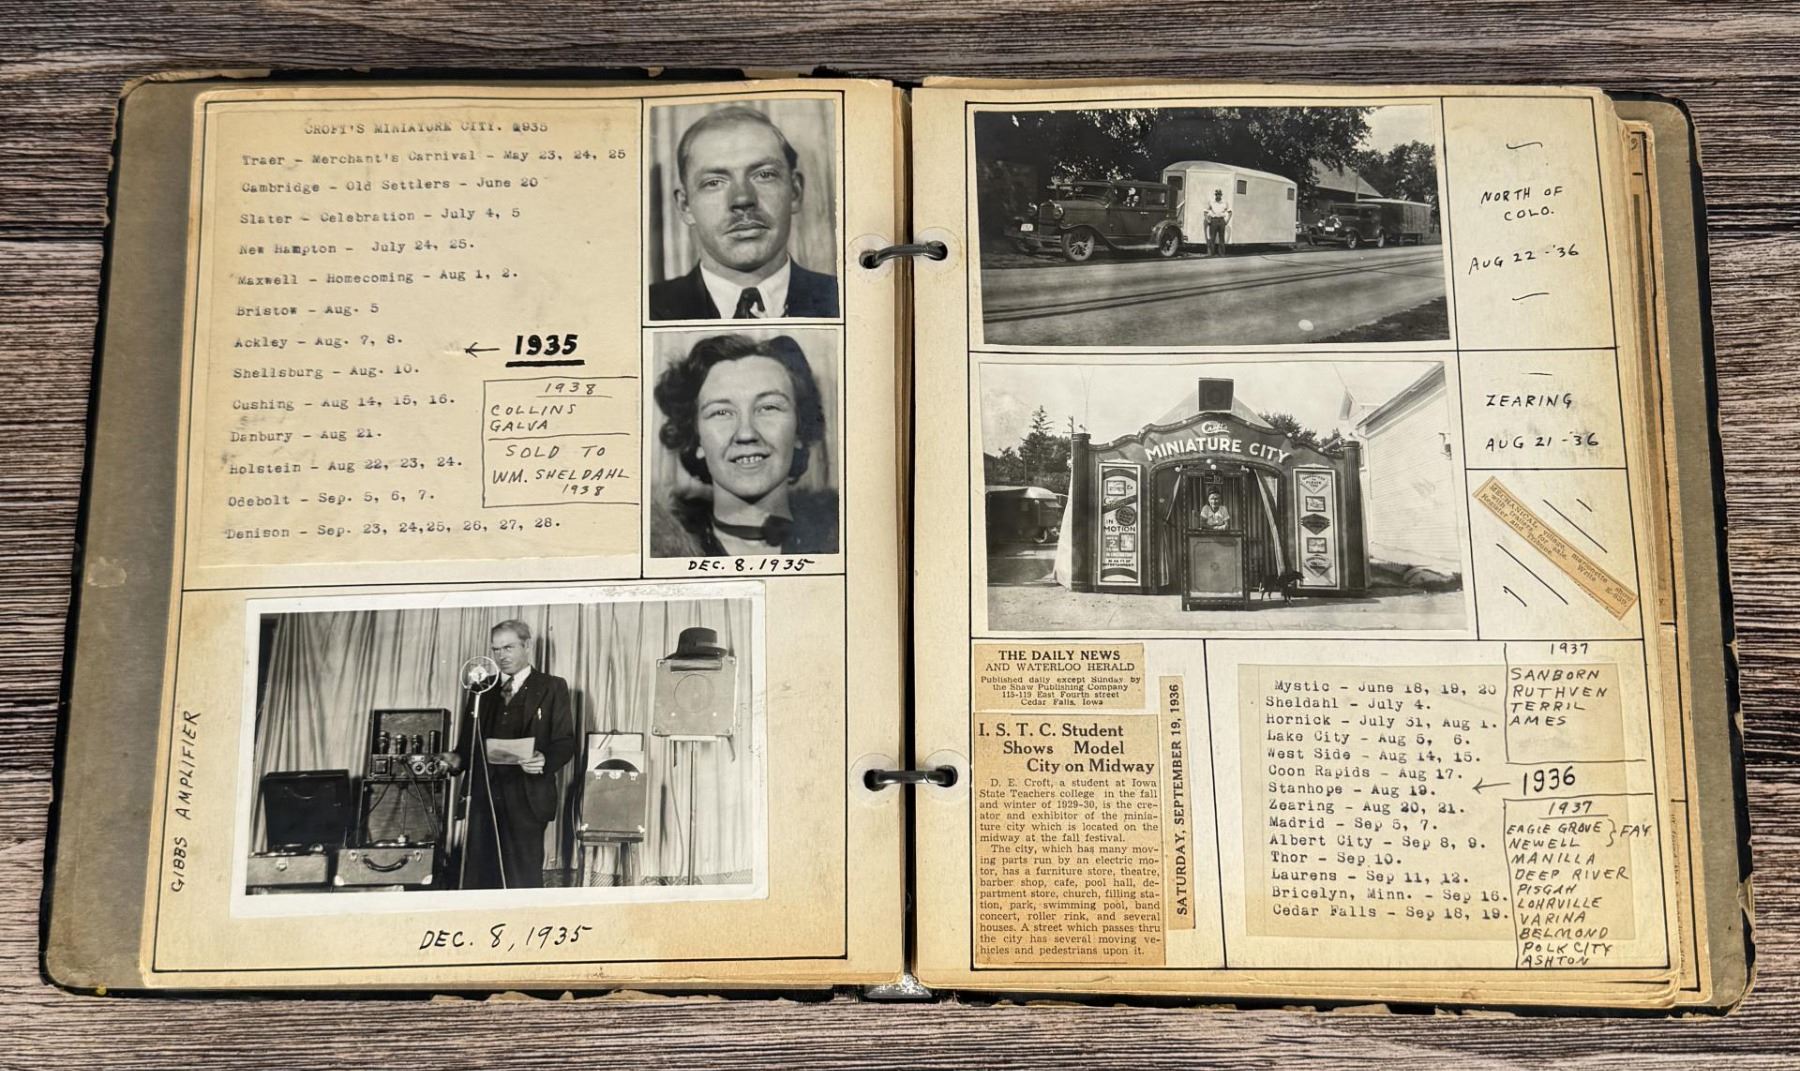 CROFT'S MINIATURE CITY. 1935
Traer - Merchant's Carnival - May 23, 24, 25
Cambridge - Old Settlers - June 20
Slater - Celebration - July 4, 5
New Hampton - July 24, 25.
Maxwell - Homecoming - Aug 1, 2.
Bristow - Aug. 5
Ackley - Aug. 7, 8.
Shellsburg - Aug. 10.
Cushing - Aug 14, 15, 16.
Danbury - Aug 21.
Holstein - Aug 22, 23, 24.
Odebolt - Sep. 5, 6, 7.
Denison - Sep. 23, 24,25, 26, 27, 28.
← 1935
1938
COLLINS
GALVA
SOLD TO
WM. SHELDAHL
1938
DEC. 8. 1935
GIBBS AMPLIFIER
DEC. 8, 1935
NORTH OF
COLO.
AUG 22 - '36
Croft's
MINIATURE CITY
IN
MOTION
ZEARING
AUG 21 - 36
MECHANICAL village, marionette show
with trailers, for sale. Write K-859,
Register and Tribune.
THE DAILY NEWS
AND WATERLOO HERALD
Published daily except Sunday by
the Shaw Publishing Company
115-119 East Fourth street
Cedar Falls, Iowa
I. S. T. C. Student
Shows Model
City on Midway
D. E. Croft, a student at Iowa
State Teachers college in the fall
and winter of 1929-30, is the cre-
ator and exhibitor of the minia-
ture city which is located on the
midway at the fall festival.
The city, which has many mov-
ing parts run by an electric mo-
tor, has a furniture store, theatre,
barber shop, cafe, pool hall, de-
partment store, church, filling sta-
tion, park, swimming pool, band
concert, roller rink, and several
houses. A street which passes thru
the city has several moving ve-
hicles and pedestrians upon it.
SATURDAY, SEPTEMBER 19, 1936
Mystic - June 18, 19, 20
Sheldahl - July 4.
Hornick - July 31, Aug 1.
Lake City - Aug 5, 6.
West Side - Aug 14, 15.
Coon Rapids - Aug 17.
Stanhope - Aug 19.
Zearing - Aug 20, 21.
Madrid - Sep 5, 7.
Albert City - Sep 8, 9.
Thor - Sep 10.
Laurens - Sep 11, 12.
Bricelyn, Minn. - Sep 16.
Cedar Falls - Sep 18, 19.
1937
SANBORN
RUTHVEN
TERRIL
AMES
← 1936
1937
EAGLE GROVE } FAY
NEWELL
MANILLA
DEEP RIVER
PISGAH
LOHRVILLE
VARINA
BELMOND
POLK CITY
ASHTON